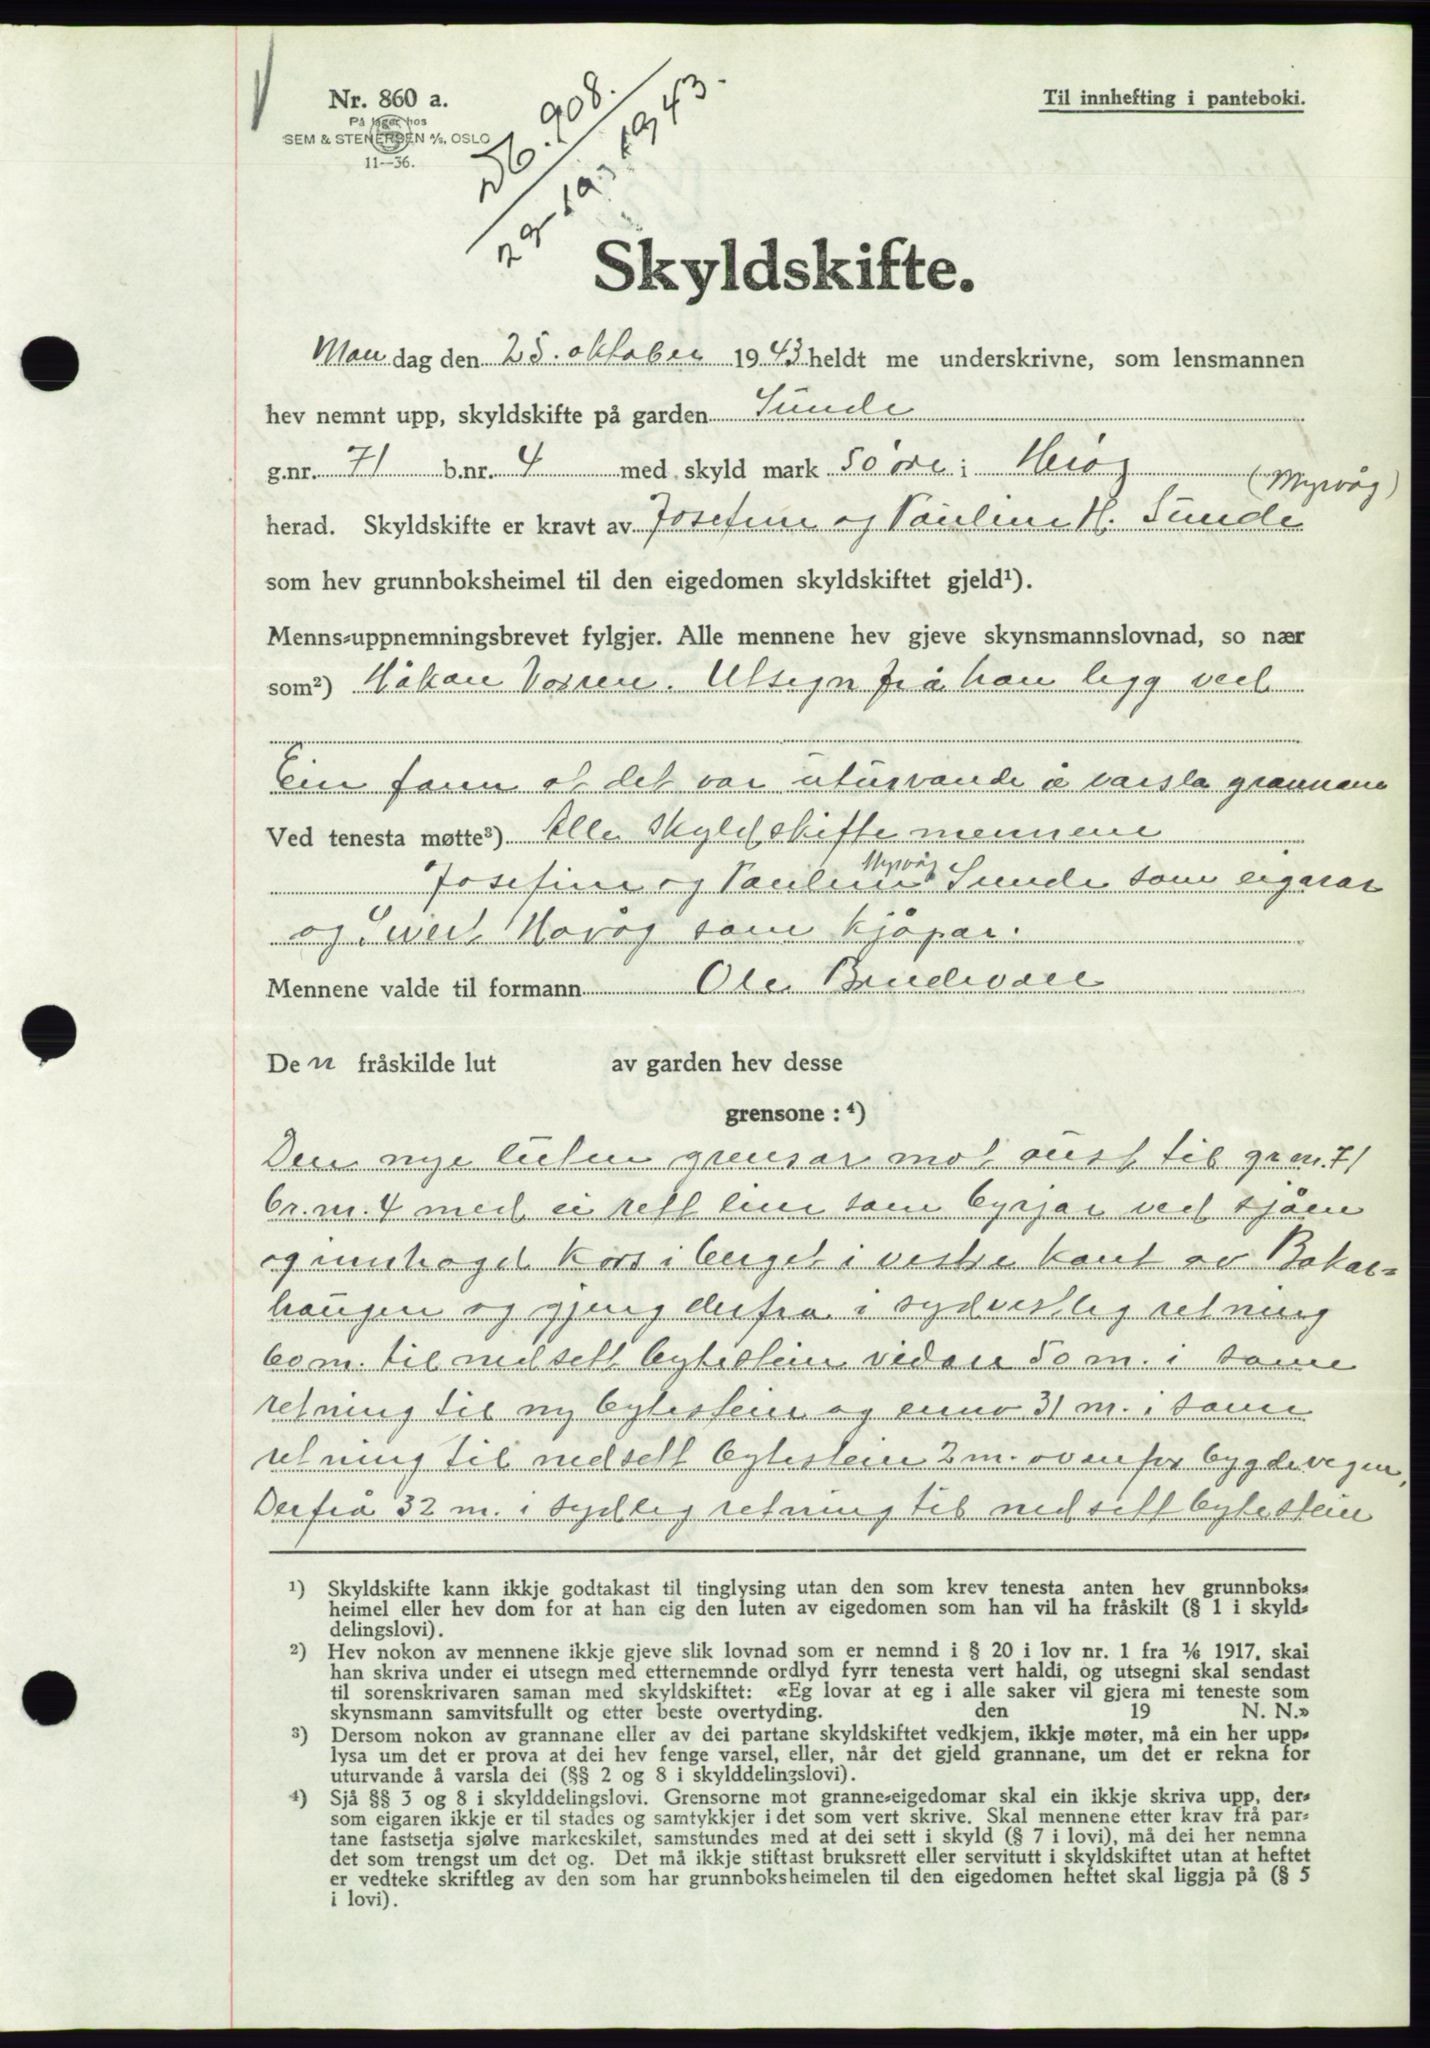 Nr. 860 a.
På lager hos
SEM & STENERSEN A/S, OSLO
11—36.
Nb. 908.
1943.
Til innhefting i panteboki.
Skyldskifte.
Mandag den 25. oktober 1943 heldt me underskrivne, som lensmannen
hev nemnt upp, skyldskifte på garden Sunde
g.nr. 71 b.nr. 4 med skyld mark 50 øre i Herøy
(Myrvåg)
herad. Skyldskifte er kravt av Josefine og Pauline H. Sunde
som hev grunnboksheimel til den eigedomen skyldskiftet gjeld¹).
Menns-uppnemningsbrevet fylgjer. Alle mennene hev gjeve skynsmannslovnad, so nær
som²) Håkon Voren. Utsegn frå han ligg ved
Ein fann at det var uturvande å varsla grannane
Ved tenesta møtte³) Alle skyldskiftemennene
Myrvåg
Josefine og Pauline Sunde som eigarar
og Sivert Havåg som kjøpar.
Mennene valde til formann Ole Brudevoll
Den fråskilde lut av garden hev desse
grensone : ⁴)
Den nye luten grensar mot aust til gr.nr. 71
br.nr. 4 med ei rett line som byrjar ved sjøen
og innhogd kors i berget i vestre kant av Bakar-
haugen og gjeng derfra i sydvestleg retning
60 m. til nedsett bytestein vidare 50 m. i same
retning til ny bytestein og enno 31 m. i same
retning til nedsett bytestein 2 m. ovanfor bygdevegen,
Derfrå 32 m. i sydleg retning til nedsett bytestein
¹) Skyldskifte kann ikkje godtakast til tinglysing utan den som krev tenesta anten hev grunnboks-
heimel eller hev dom for at han eig den luten av eigedomen som han vil ha fråskilt (§ 1 i skyld-
delingslovi).
²) Hev nokon av mennene ikkje gjeve slik lovnad som er nemnd i § 20 i lov nr. 1 fra 1/6 1917, skal
han skriva under ei utsegn med etternemnde ordlyd fyrr tenesta vert haldi, og utsegni skal sendast
til sorenskrivaren saman med skyldskiftet: «Eg lovar at eg i alle saker vil gjera mi teneste som
skynsmann samvitsfullt og etter beste overtyding. den 19 N. N.»
³) Dersom nokon av grannane eller av dei partane skyldskiftet vedkjem, ikkje møter, må ein her upp-
lysa um det er prova at dei hev fenge varsel, eller, når det gjeld grannane, um det er rekna for
uturvande å varsla dei (§§ 2 og 8 i skylddelingslovi).
⁴) Sjå §§ 3 og 8 i skylddelingslovi. Grensorne mot granne-eigedomar skal ein ikkje skriva upp, der-
som eigaren ikkje er til stades og samtykkjer i det som vert skrive. Skal mennene etter krav frå par-
tane fastsetja sjølve markeskilet, samstundes med at dei sett i skyld (§ 7 i lovi), må dei her nemna
det som trengst um det og. Det må ikkje stiftast bruksrett eller servitutt i skyldskiftet utan at heftet
er vedteke skriftleg av den som har grunnboksheimelen til den eigedomen heftet skal liggja på (§ 5
i lovi).